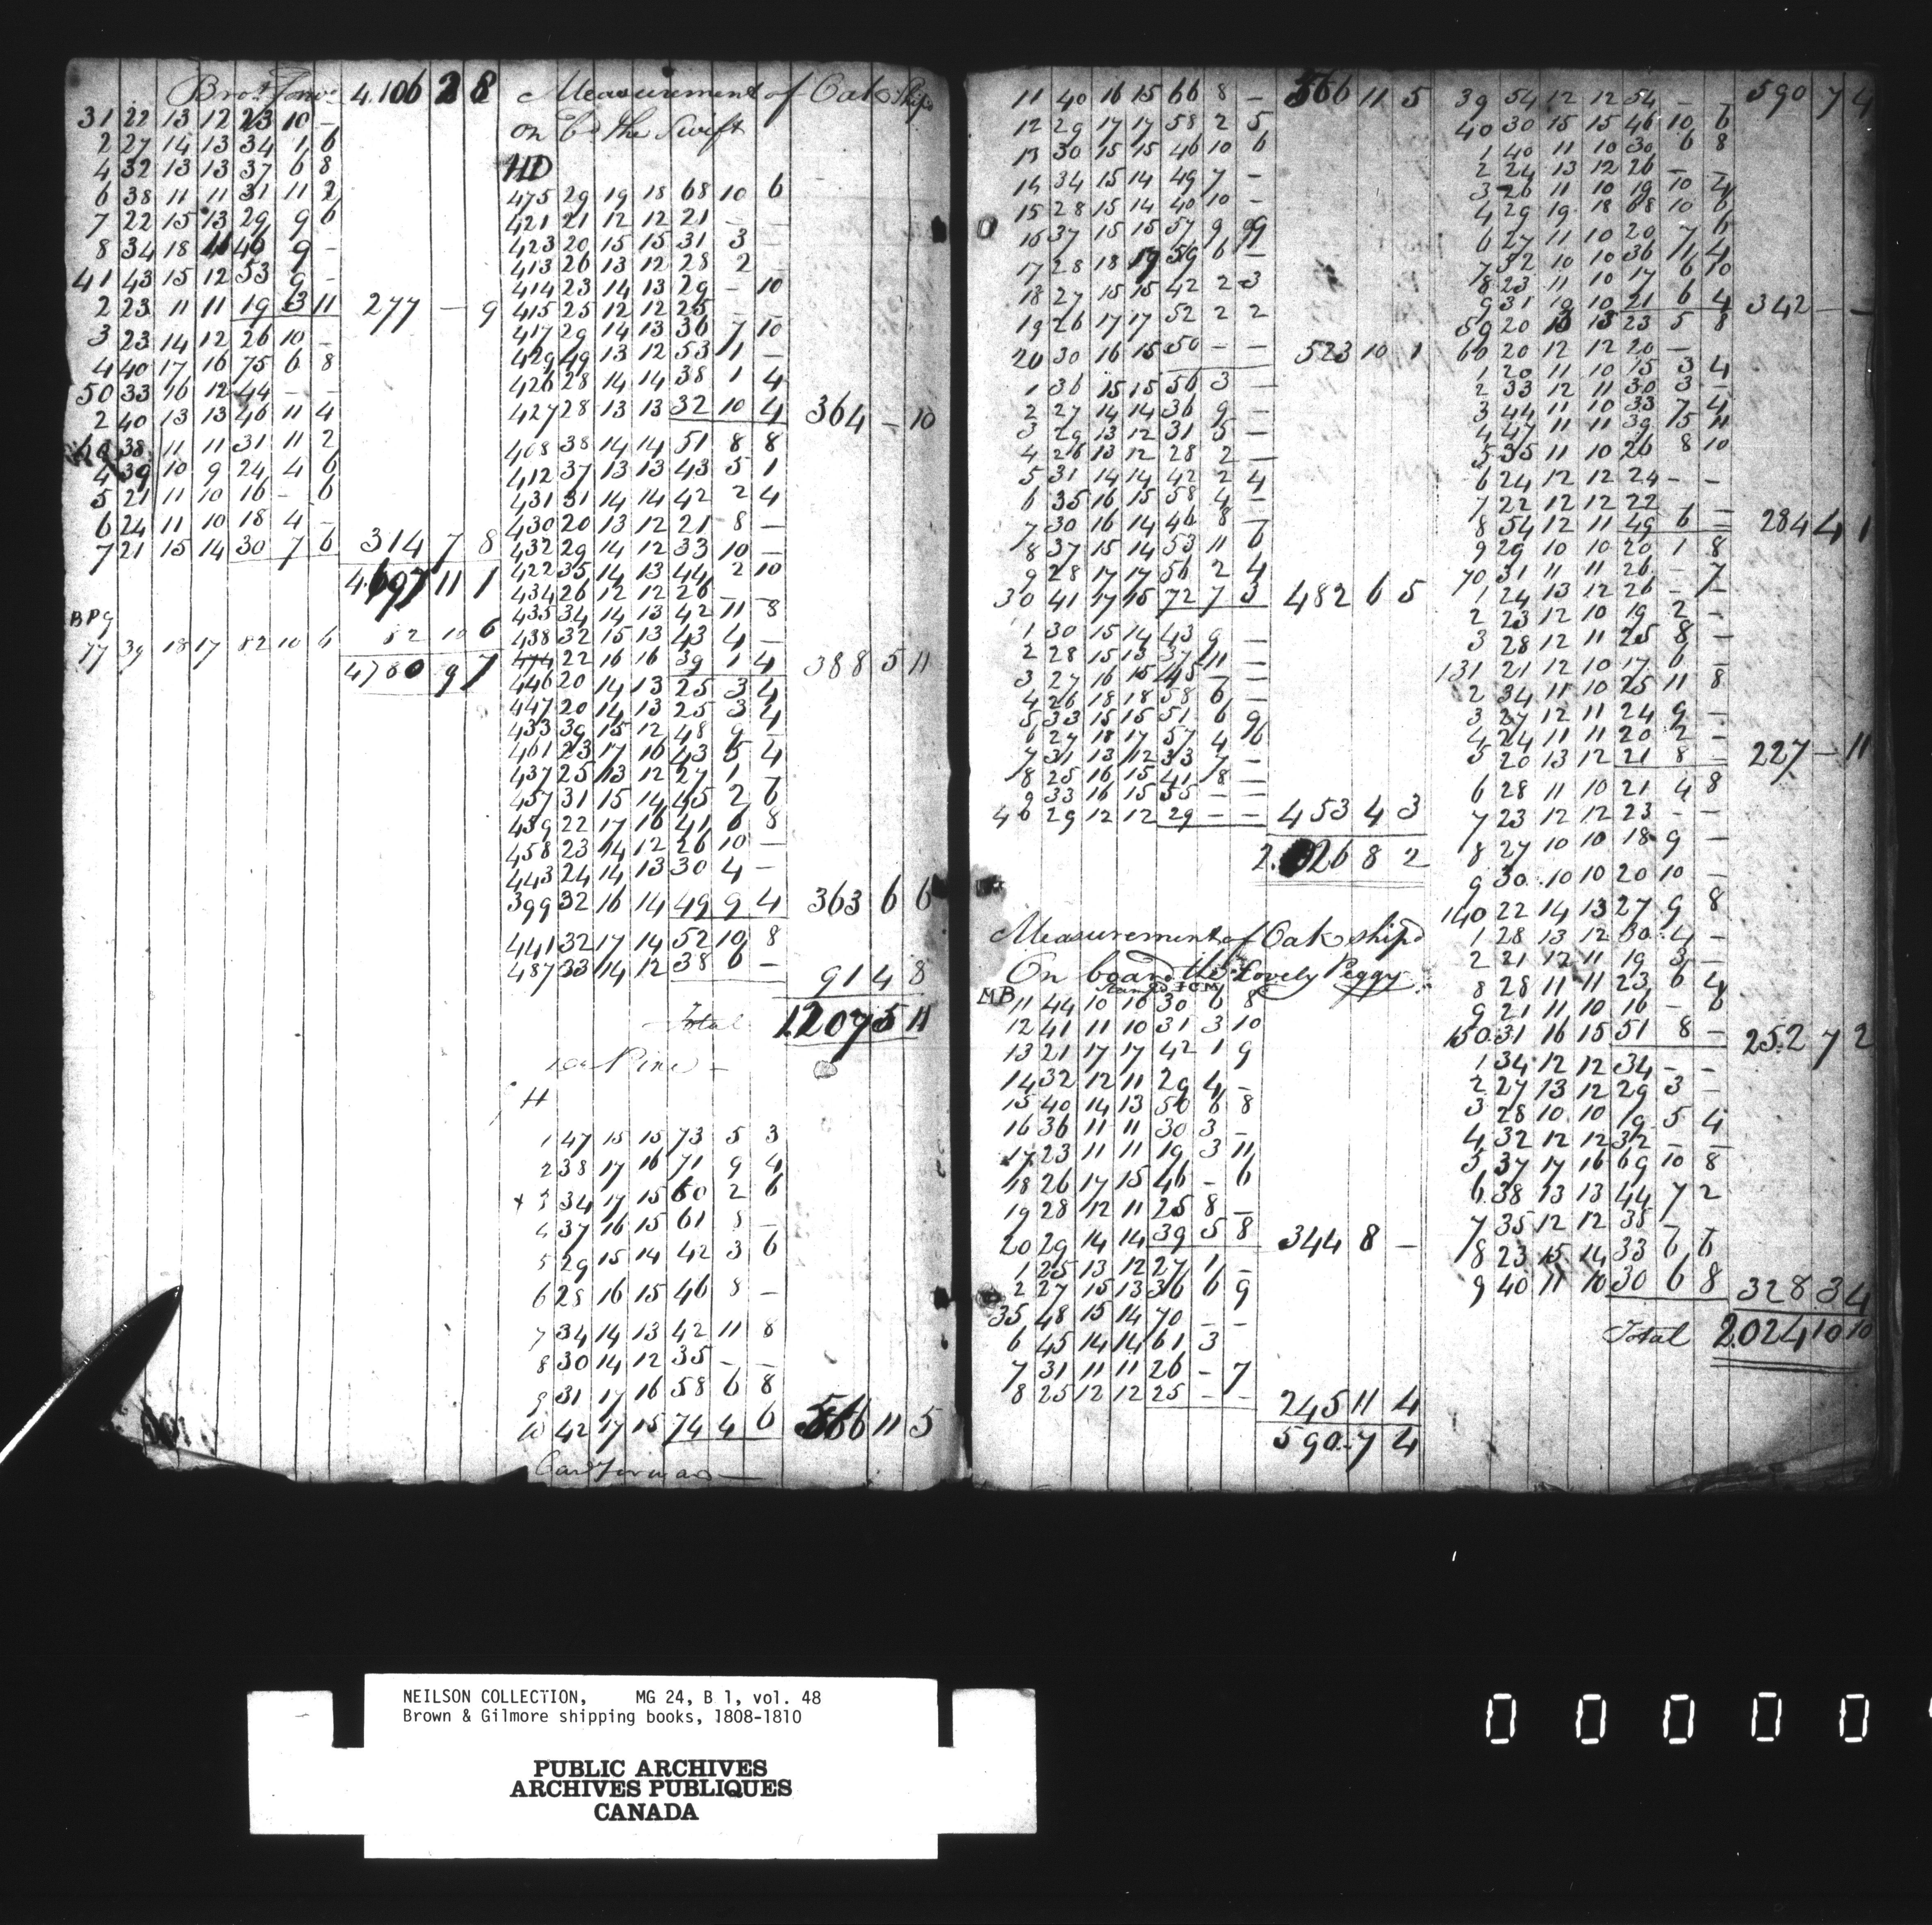 Bro.t Forw.d 4.106 2 8
31 22 13 12 23 10 –
2 27 14 13 34 1 6
4 32 13 13 37 6 8
6 38 11 11 31 11 2
7 22 15 13 29 9 6
8 34 18 11 46 9 –
41 43 15 12 53 9 –
2 23 11 11 19 3 11 277 – 9
3 23 14 12 26 10 –
4 40 17 16 75 6 8
50 33 16 12 44 – –
2 40 13 13 46 11 4
38 11 11 31 11 2
4 39 10 9 24 4 6
5 21 11 10 16 – 6
6 24 11 10 18 4 –
7 21 15 14 30 7 6 314 7 8
4.697 11 1
BPG
77 39 18 17 82 10 6 82 10 6
4780 9 7
Measurement of Oak Ship.d
on b.d the Swift
HD
475 29 19 18 68 10 6
421 21 12 12 21 – –
423 20 15 15 31 3 –
413 26 13 12 28 2 –
414 23 14 13 29 – 10
415 25 12 12 25 – –
417 29 14 13 36 7 10
429 49 13 12 53 1 –
426 28 14 14 38 1 4
427 28 13 13 32 10 4 364 – 10
408 38 14 14 51 8 8
412 37 13 13 43 5 1
431 31 14 14 42 2 4
430 20 13 12 21 8 –
432 29 14 12 33 10 –
422 35 14 13 44 2 10
434 26 12 12 26 – –
435 34 14 13 42 11 8
438 32 15 13 43 4 –
474 22 16 16 39 1 4 388 5 11
446 20 14 13 25 3 4
447 20 14 13 25 3 4
433 39 15 12 48 9 –
461 23 17 16 43 5 4
437 25 13 12 27 1 –
457 31 15 14 45 2 6
459 22 17 16 41 6 8
458 23 14 12 26 10 –
443 24 14 13 30 4 –
399 32 16 14 49 9 4 363 6 6
441 32 17 14 52 10 8
487 33 14 12 38 6 –
91 4 8
Total 1.207 5 11
Pine
H
1 47 15 15 73 5 3
2 38 17 16 71 9 4
+ 3 34 17 15 60 2 6
4 37 16 15 61 8 –
5 29 15 14 42 3 6
6 28 16 15 46 8 –
7 34 14 13 42 11 8
8 30 14 12 35 – –
9 31 17 16 58 6 8
10 42 17 15 74 4 6 566 11 5
11 40 16 15 66 8 – 566 11 5
12 29 17 17 58 2 5
13 30 15 15 46 10 6
14 34 15 14 49 7 –
15 28 15 14 40 10 –
16 37 15 15 57 9 9
17 28 18 17 59 6 –
18 27 15 15 42 2 3
19 26 17 17 52 2 2
20 30 16 15 50 – – 523 10 1
1 36 15 15 56 3 –
2 27 14 14 36 9 –
3 29 13 12 31 5 –
4 26 13 12 28 2 –
5 31 14 14 42 2 4
6 35 16 15 58 4 –
7 30 16 14 46 8 –
8 37 15 14 53 11 6
9 28 17 17 56 2 4
30 41 17 15 72 7 3 482 6 5
1 30 15 14 43 9 –
2 28 15 13 37 11 –
3 27 16 15 45 – –
4 26 18 18 58 6 –
5 33 15 15 51 6 9
6 27 18 17 57 4 6
7 31 13 12 33 7 –
8 25 16 15 41 8 –
9 33 16 15 55 – –
40 29 12 12 29 – – 453 4 3
2.026 8 2
Measurement of Oak ship.d
On board the Lovely Peggy
MB
11 44 10 10 30 6 8
12 41 11 10 31 3 10
13 21 17 17 42 1 9
14 32 12 11 29 4 –
15 40 14 13 50 6 8
16 36 11 11 30 3 –
17 23 11 11 19 3 11
18 26 17 15 46 – 6
19 28 12 11 25 8 –
20 29 14 14 39 5 8 344 8 –
1 25 13 12 27 1 –
2 27 15 13 36 6 9
35 48 15 14 70 – –
6 45 14 14 61 3
7 31 11 11 26 – 7
8 25 12 12 25 – –
245 11 4
590 7 4
39 54 12 12 54 – – 590 7 4
40 30 15 15 46 10 6
1 40 11 10 30 6 8
2 24 13 12 26 – –
3 26 11 10 19 10 4
4 29 19 18 68 10 6
6 27 11 10 20 7 6
7 52 10 10 36 11 4
8 23 11 10 17 6 10
9 31 10 10 21 6 4 342 – –
59 20 13 13 23 5 8
60 20 12 12 20 –
1 20 11 10 15 3 4
2 33 12 11 30 3 –
3 44 11 10 33 7 4
4 47 11 11 39 5 11
5 35 11 10 26 8 10
6 24 12 12 24 – –
7 22 12 12 22
8 54 12 11 49 6 – 284 4 1
9 29 10 10 20 1 8
70 31 11 11 26 – 7
1 24 13 12 26 – –
2 23 12 10 19 2 –
3 28 12 11 25 8 –
131 21 12 10 17 6 –
2 34 11 10 25 11 8
3 27 12 11 24 9 –
4 24 11 11 20 2 –
5 20 13 12 21 8 – 227 – 11
6 28 11 10 21 4 8
7 23 12 12 23 – –
8 27 10 10 18 9 –
9 30 10 10 20 10 –
140 22 14 13 27 9 8
1 28 13 12 30 4 –
2 21 12 11 19 3 –
8 28 11 11 23 6 4
9 21 11 10 16 – 6
150 31 16 15 51 8 – 252 7 2
1 34 12 12 34 – –
2 27 13 12 29 3 –
3 28 10 10 19 5 4
4 32 12 12 32 – –
5 37 17 16 69 10 8
6 38 13 13 44 7 2
7 35 12 12 35 – –
8 23 15 14 33 6 6
9 40 11 10 30 6 8 328 3 4
Total 2.024 10 10
NEILSON COLLECTION, MG 24, B 1, vol. 48
Brown & Gilmore shipping books, 1808-1810
PUBLIC ARCHIVES
ARCHIVES PUBLIQUES
CANADA
0 0 0 0 0